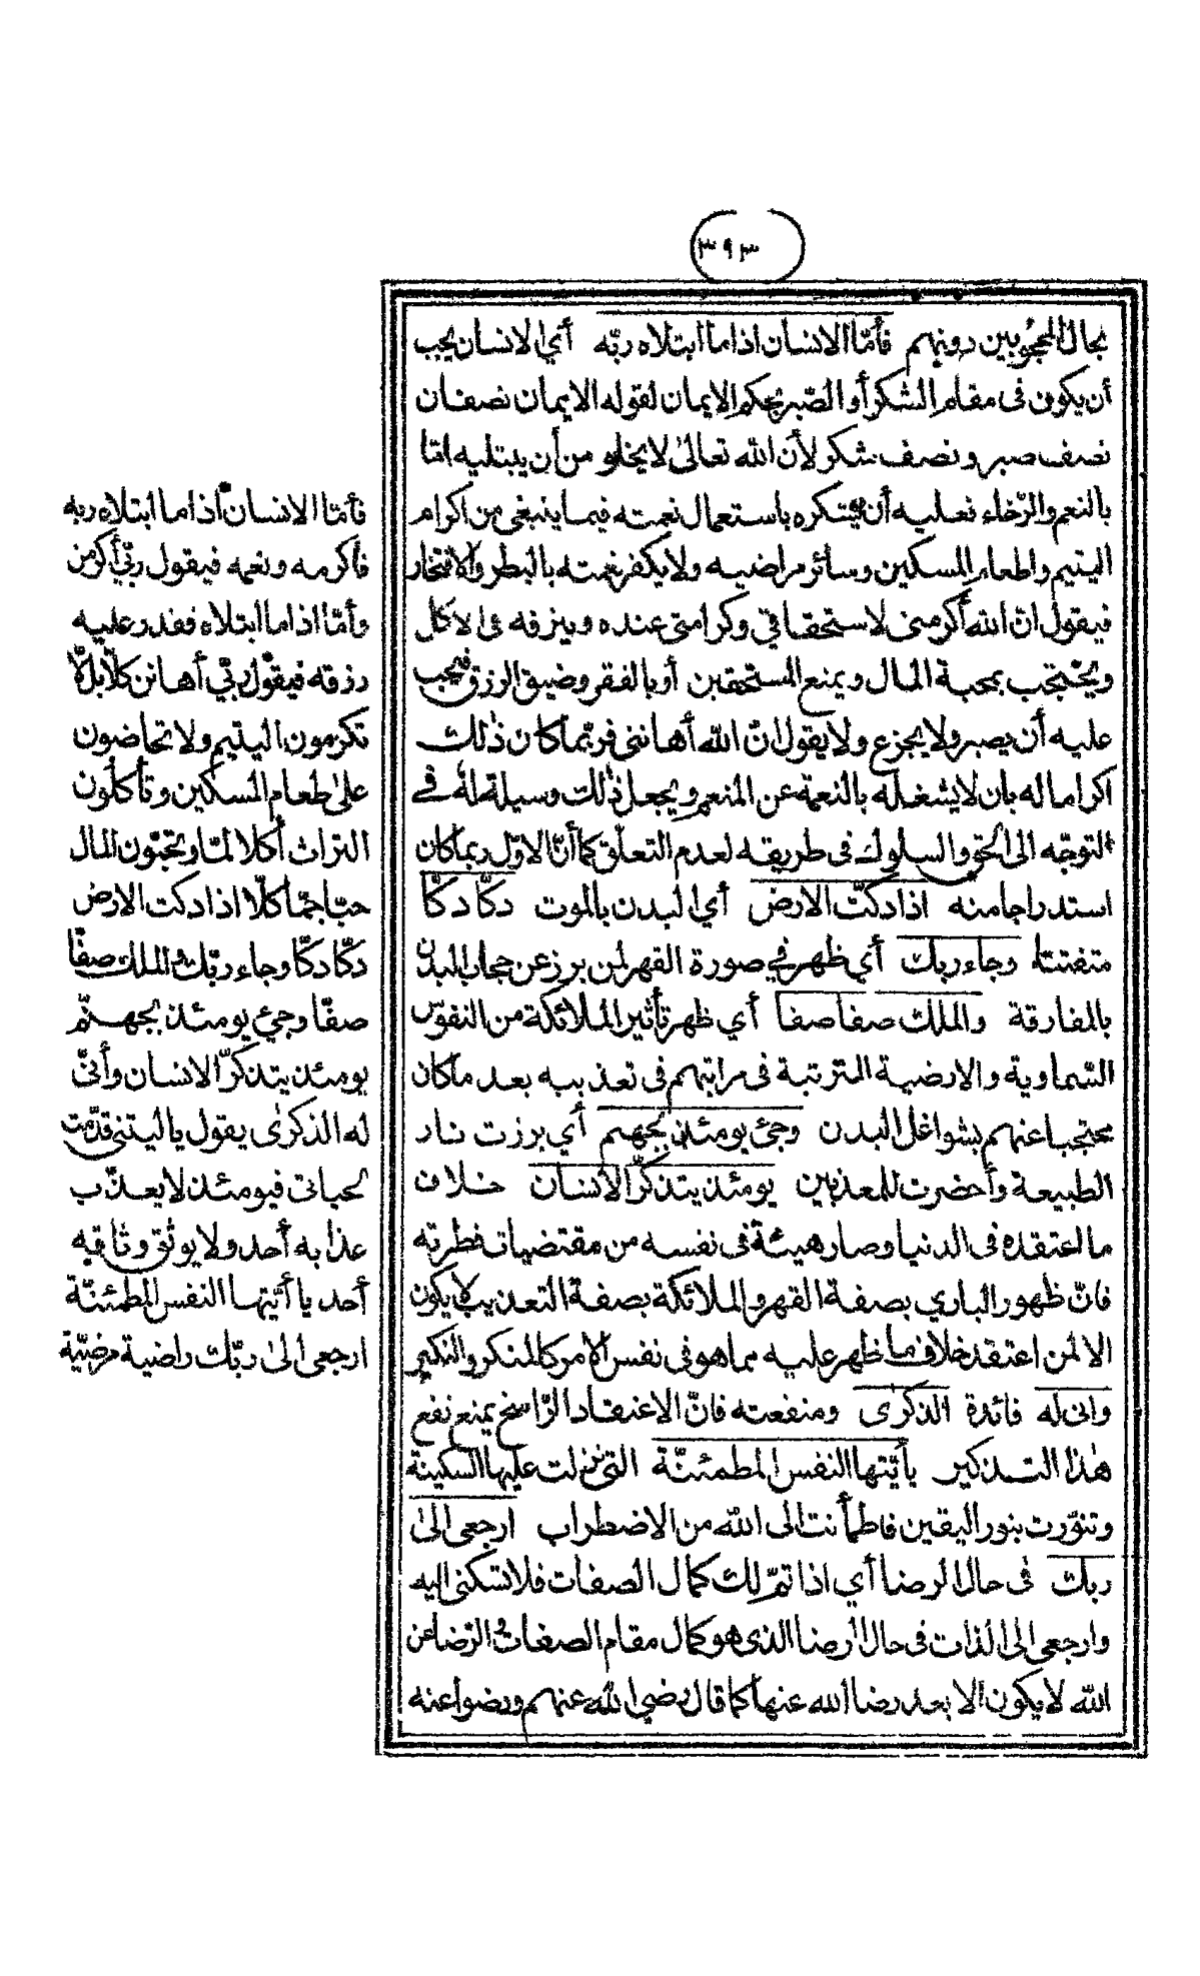 (٣٩٣)
بحال المحجوبين دونهم فأمّا الانسان اذا ما ابتلاه ربّه أي الانسان يجب
أن يكون فى مقام الشكر أو الصّبر بحكم الايمان لقوله الايمان نصفان
نصف صبر ونصف شكر لأن الله تعالى لا يخلو من أن يبتليه امّا
بالنعم والرّخاء فعليه أن يشكره باستعمال نعمته فيما ينبغى من اكرام
اليتيم واطعام المسكين وسائر مراضيه ولا يكفر نعمته بالبطر والافتخار
فيقول انّ الله أكرمنى لاستحقاقي وكرامتى عنده ويترفه فى الاكل
ويحتجب بمحبة المال ويمنع المستحقين أو بالفقر وضيق الرزق فيجب
عليه أن يصبر ولا يجزع ولا يقول انّ الله أهاننى فربّما كان ذلك
اكراما له بان لا يشغله بالنعمة عن المنعم ويجعل ذلك وسيلة له في
التوجّه الى الحق والسلوك فى طريقه لعدم التعلّق كما أنّ الاوّل ربما كان
استدراجا منه اذا دكّت الارض أي البدن بالموت دكّا دكّا
متفتتا وجاء ربك أي ظهر في صورة القهر لمن برز عن حجاب البدن
بالمفارقة والملك صفا صفا أي ظهر تأثير الملائكة من النفوس
السّماوية والارضية المترتبة فى مراتبهم فى تعذيبه بعد ما كان
محتجبا عنهم بشواغل البدن وجئ يومئذ بجهنم أي برزت نار
الطبيعة وأحضرت للمعذبين يومئذ يتذكّر الانسان خلاف
ما اعتقده فى الدنيا وصار هيئة فى نفسه من مقتضيات فطرته
فانّ ظهور البارى بصفة القهر والملائكة بصفة التعذيب لا يكون
الا لمن اعتقد خلاف ما ظهر عليه مما هو فى نفس الامر كالمنكر والنكير
وانى له فائدة الذكرى ومنفعته فانّ الاعتقاد الرّاسخ يمنع نفع
هٰذا التذكير يأيّتها النفس المطمئنّة التى نزلت عليها السكينة
وتنوّرت بنور اليقين فاطمأنت الى الله من الاضطراب ارجعى الىٰ
ربك فى حال الرضا أي اذا تمّ لك كمال الصفات فلا تسكنى اليه
وارجعى الى الذات فى حال الرضا الذى هو كمال مقام الصفات والرّضا عن
الله لا يكون الا بعد رضا الله عنها كما قال رضي الله عنهم ورضوا عنه
فأمّا الانسان اذا ما ابتلاه ربه
فاكرمه ونعمه فيقول ربّي أكرمن
وأمّا اذا ما ابتلاه فقدر عليه
رزقه فيقول ربّي أهانن كلّا بل لا
تكرمون اليتيم ولا تحاضون
على طعام المسكين وتأكلون
التراث أكلا لمّا وتحبّون المال
حبّا جمّا كلّا اذا دكت الارض
دكّا دكّا وجاء ربّك والملك صفّا
صفّا وجئ يومئذ بجهنّم
يومئذ يتذكّر الانسان وأنّى
له الذكرى يقول ياليتنى قدّمت
لحياتى فيومئذ لا يعذّب
عذابه أحد ولا يوثق وثاقه
أحد يا أيّتها النفس المطمئنّة
ارجعى الى ربّك راضية مرضيّة